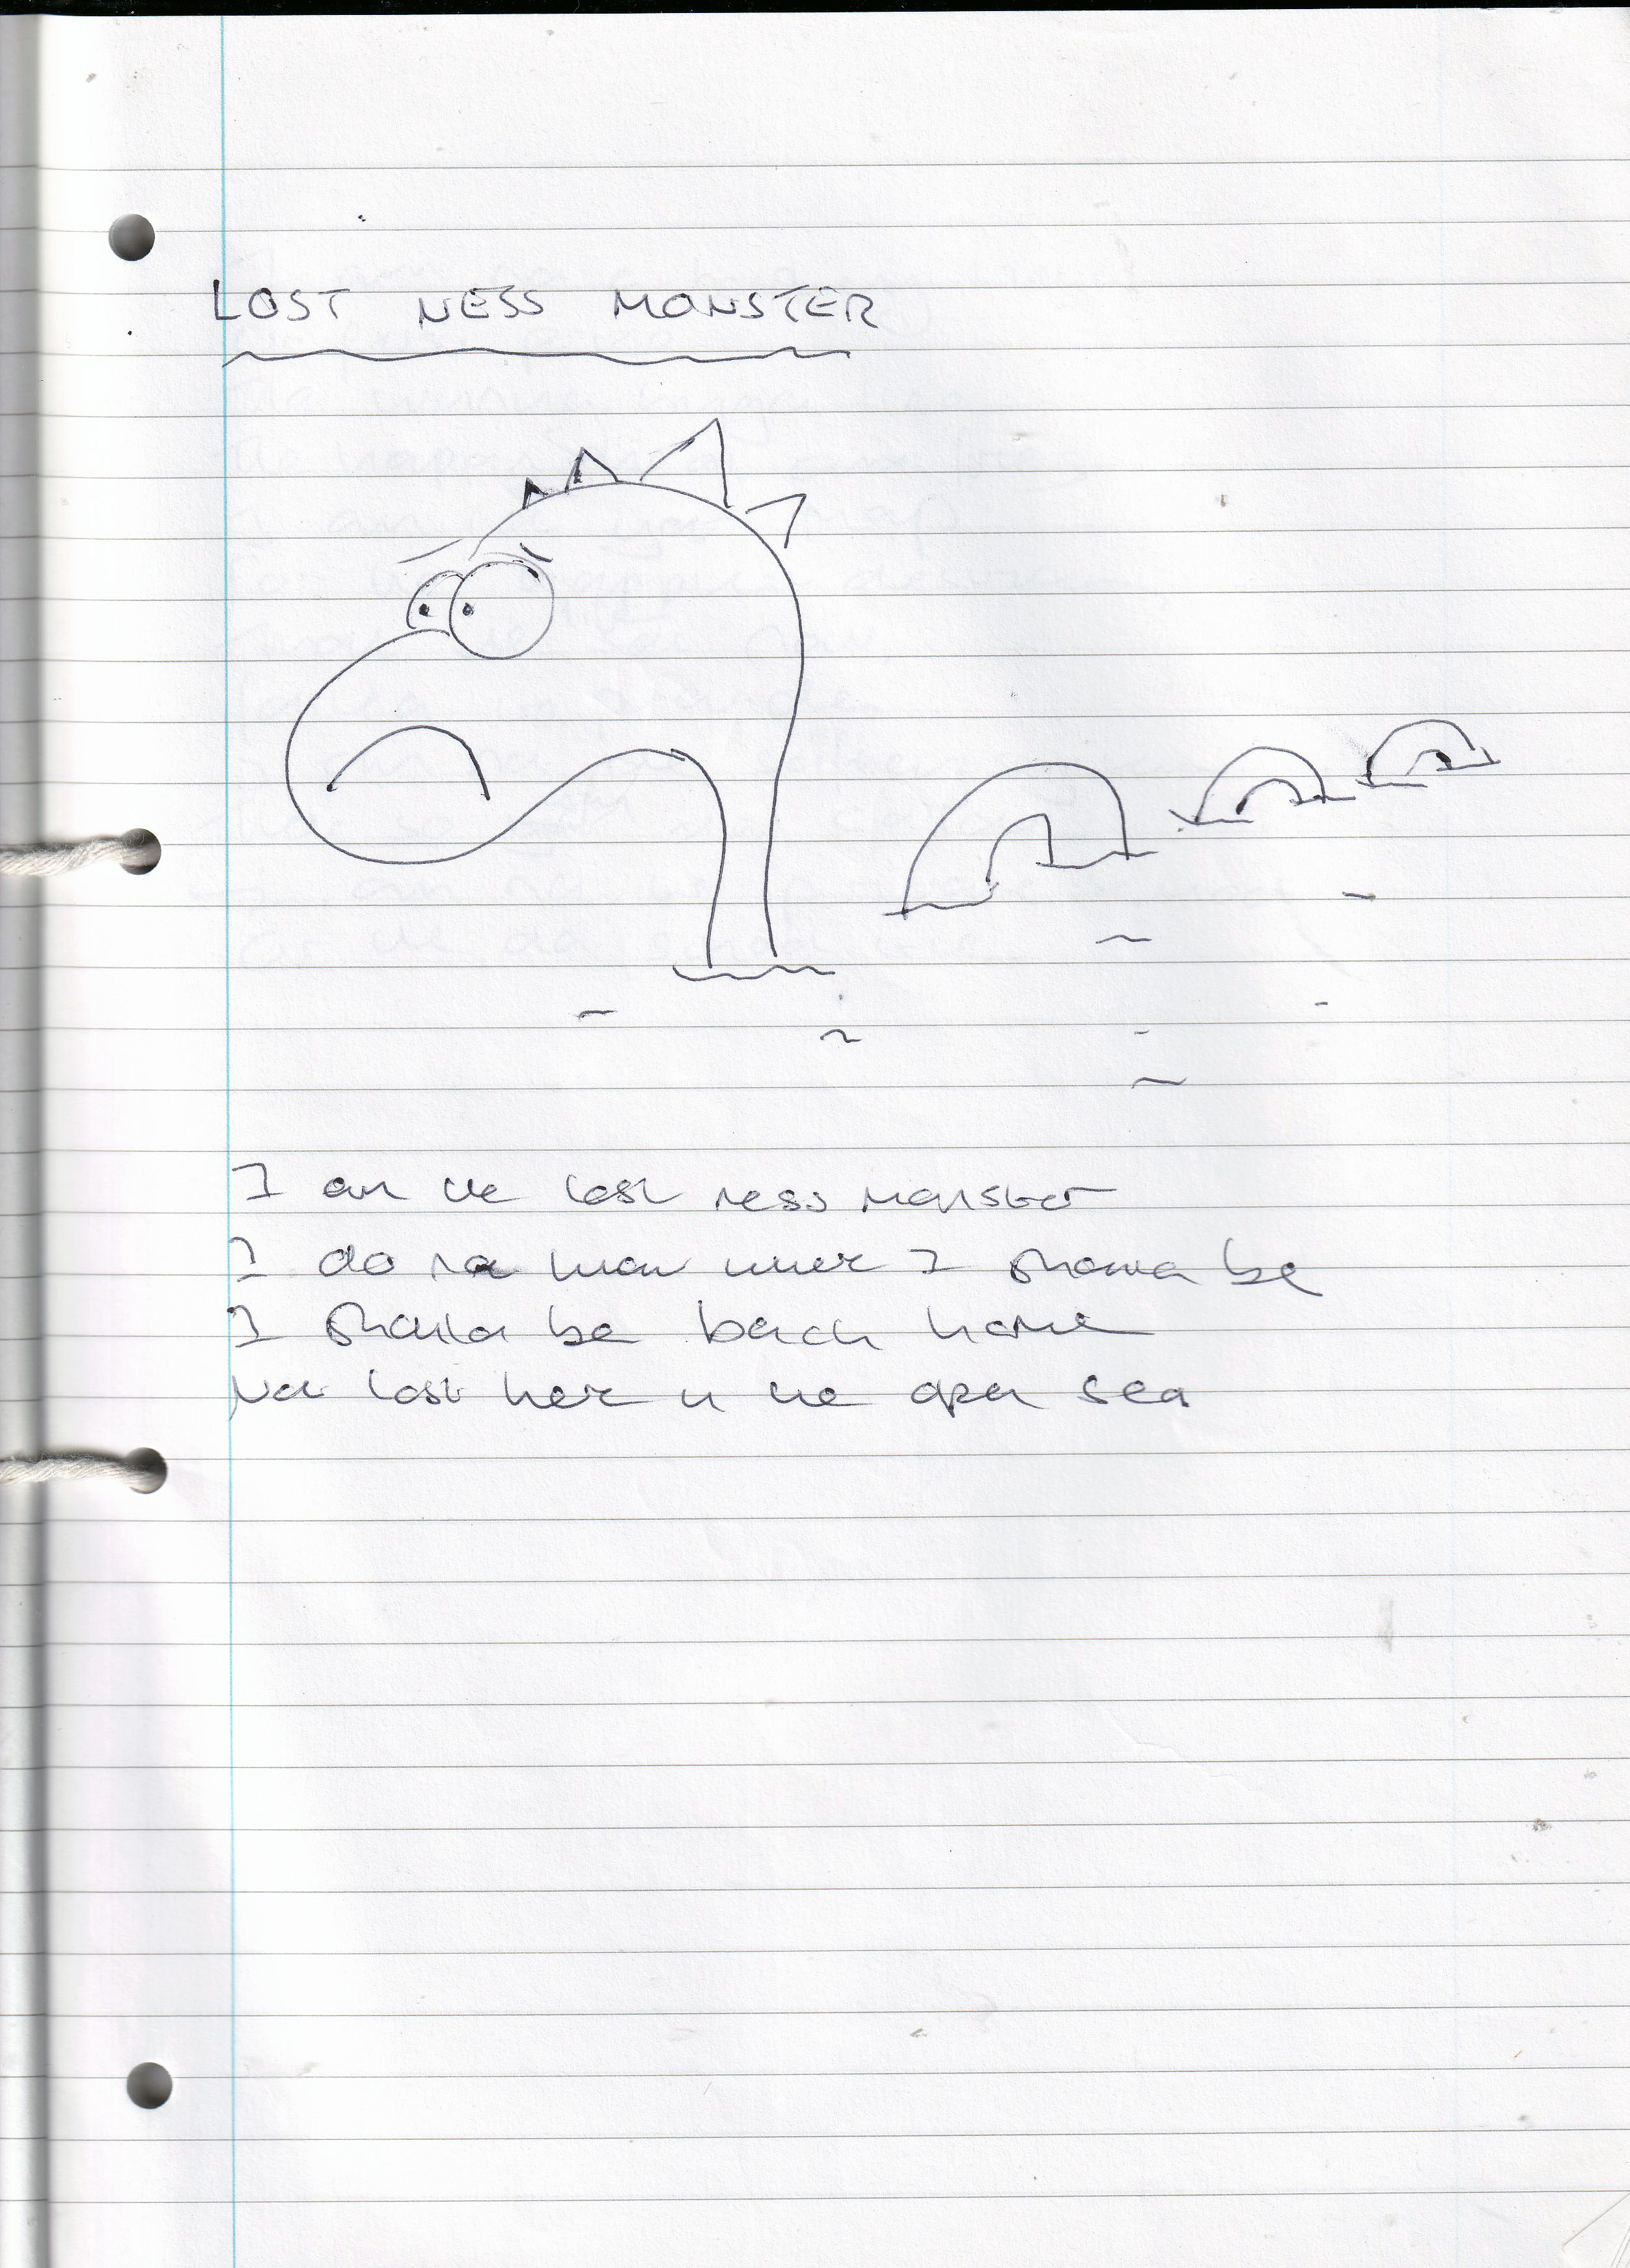 LOST NESS MONSTER
I am the lost ness monster
I do na know where I should be
I should be back home
Not lost here in the open sea